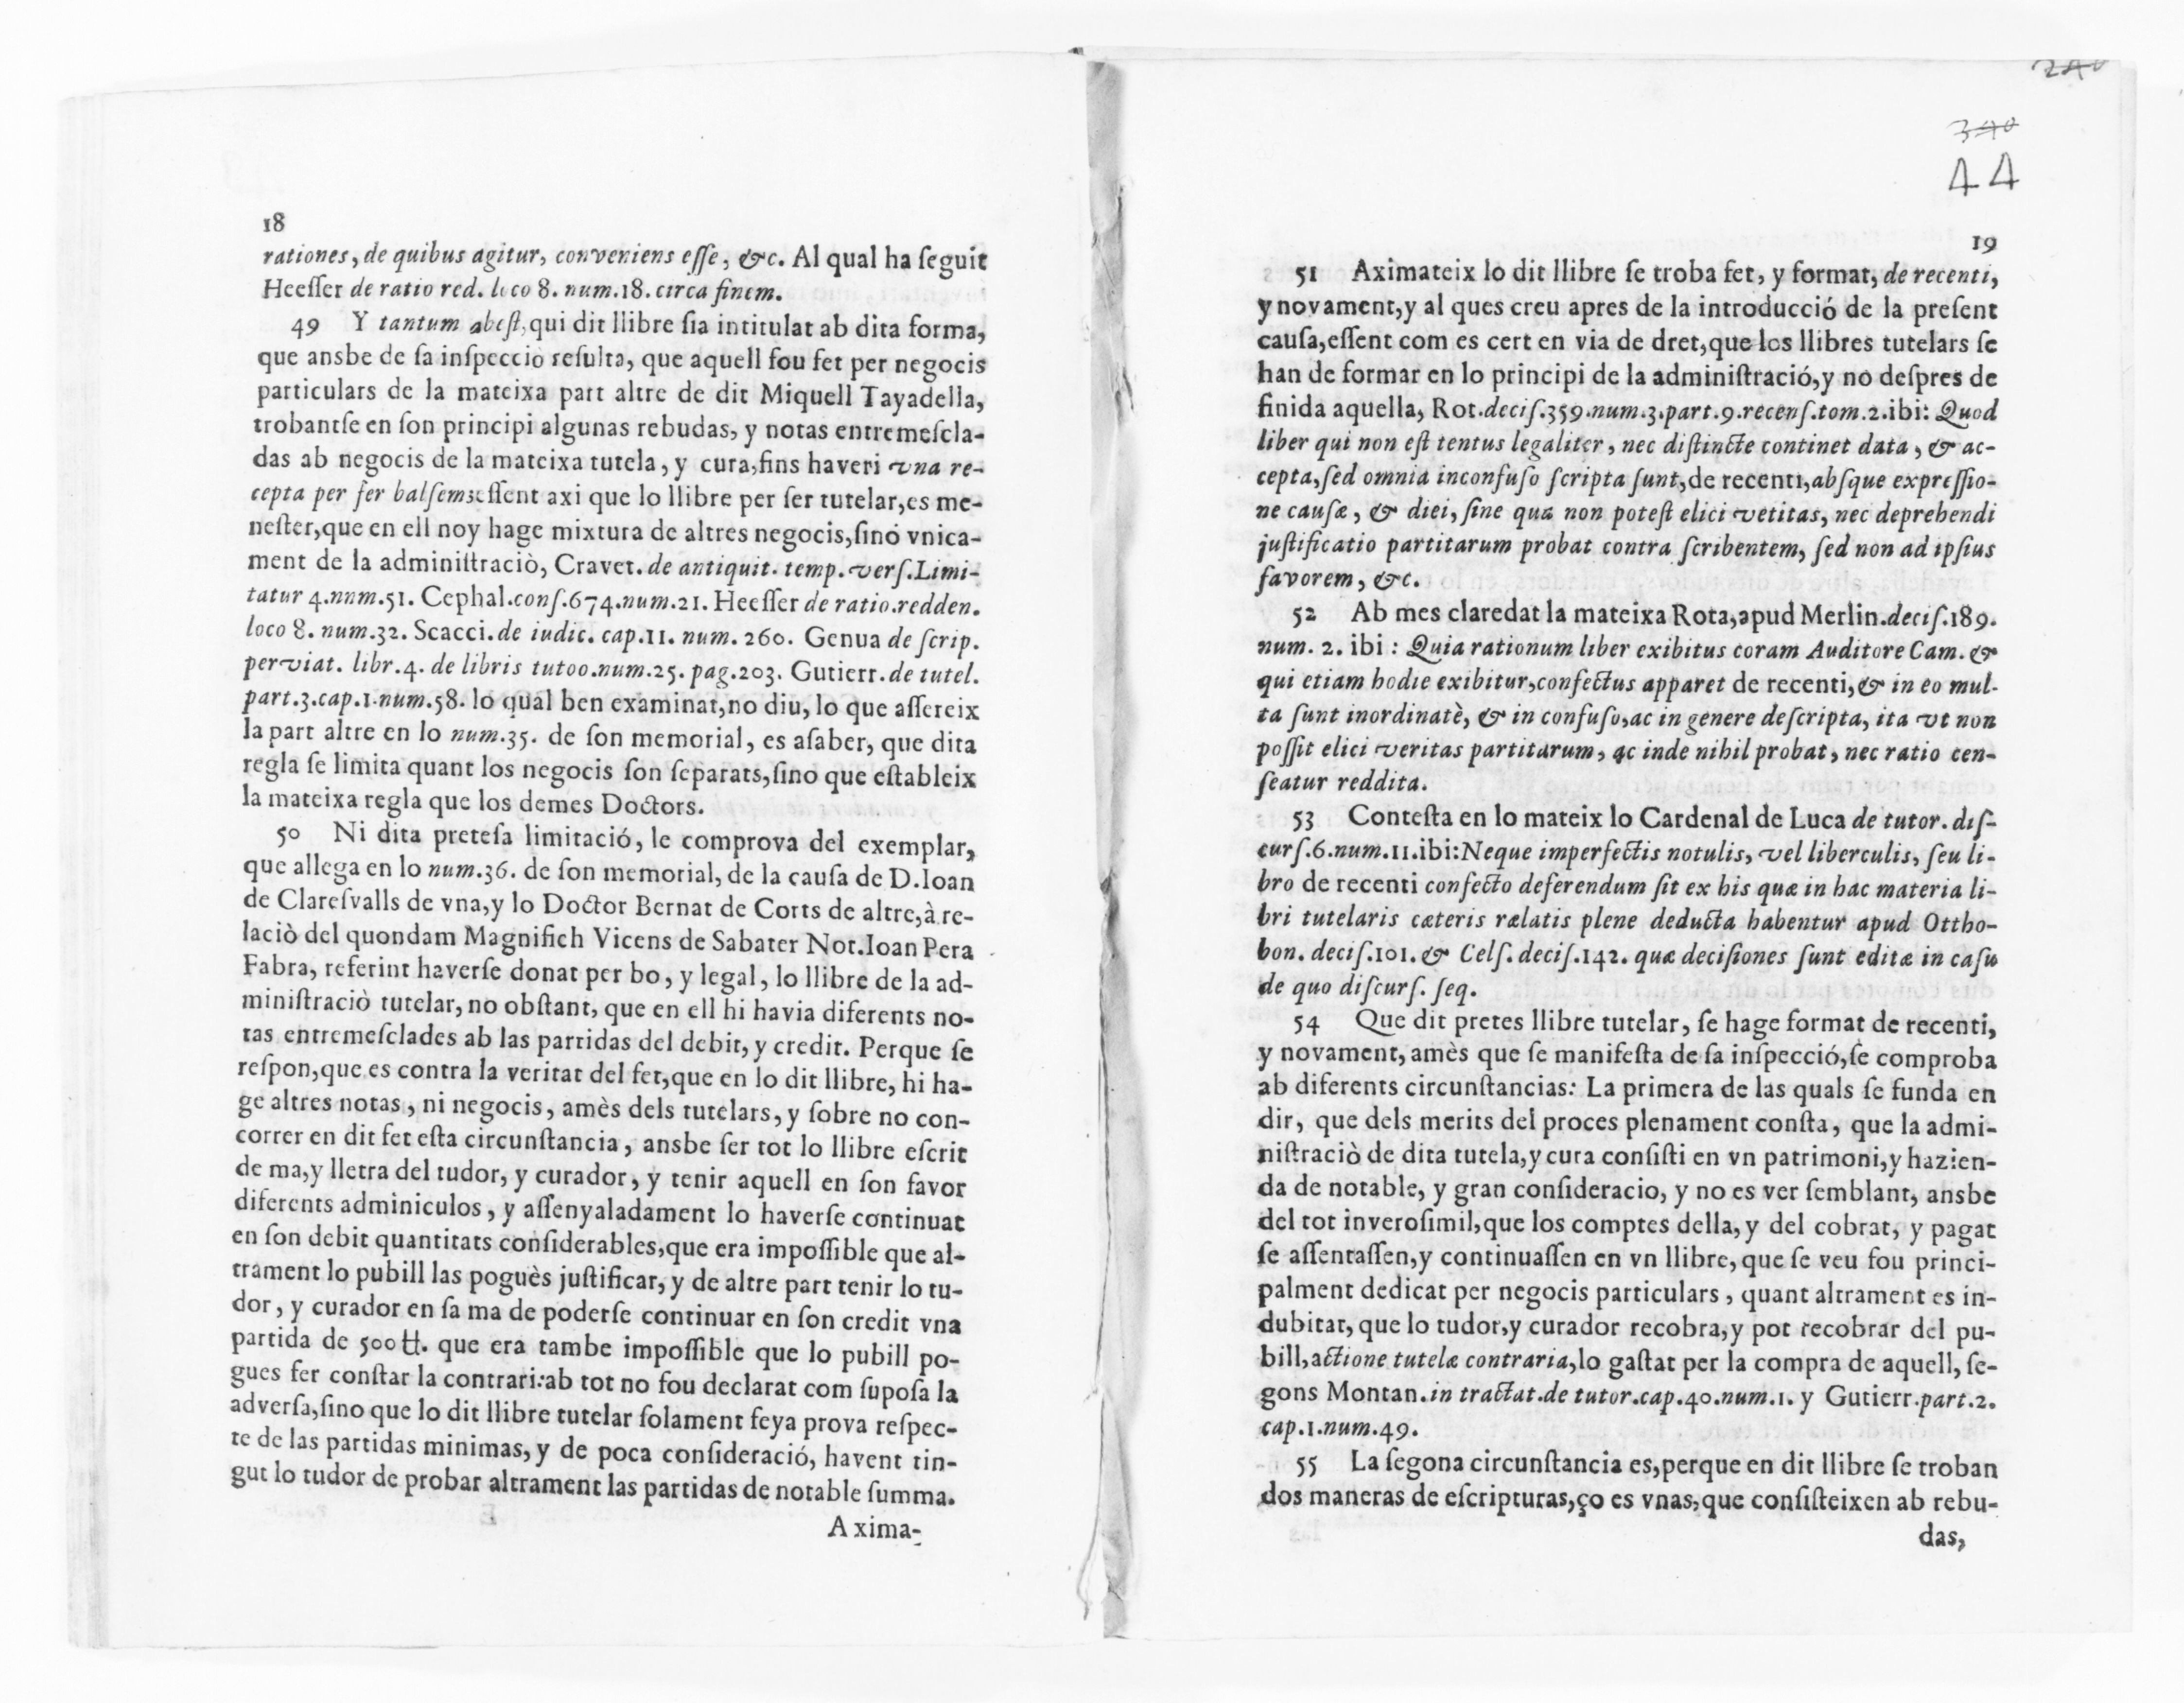 18
rationes, de quibus agitur, conveniens esse, &c. Al qual ha seguit
Heesser de ratio red. loco 8. num.18. circa finem.
49 Y tantum abest, qui dit llibre sia intitulat ab dita forma,
que ansbe de sa inspecciò resulta, que aquell fou fet per negocis
particulars de la mateixa part altre de dit Miquell Tayadella,
trobantse en son principi algunas rebudas, y notas entremescla-
das ab negocis de la mateixa tutela, y cura, fins haveri vna re-
cepta per fer balsem: essent axi que lo llibre per ser tutelar, es me-
nester, que en ell noy hage mixtura de altres negocis, sinó vnica-
ment de la administraciò, Cravet. de antiquit. temp. vers. Limi-
tatur 4.num.51. Cephal.cons.674.num.21. Heesser de ratio.redden.
loco 8. num.32. Scacci. de iudic. cap.11. num. 260. Genua de scrip.
perviat. libr.4. de libris tutoo.num.25. pag.203. Gutierr. de tutel.
part.3.cap.1.num.58. lo qual ben examinat, no diu, lo que assereix
la part altre en lo num.35. de son memorial, es asaber, que dita
regla se limita quant los negocis son separats, sino que estableix
la mateixa regla que los demes Doctors.
50 Ni dita pretesa limitació, le comprova del exemplar,
que allega en lo num.36. de son memorial, de la causa de D.Ioan
de Claresvalls de vna, y lo Doctor Bernat de Corts de altre, à re-
laciò del quondam Magnifich Vicens de Sabater Not. Ioan Pera
Fabra, referint haverse donat per bo, y legal, lo llibre de la ad-
ministraciò tutelar, no obstant, que en ell hi havia diferents no-
tas entremesclades ab las partidas del debit, y credit. Perque se
respon, que es contra la veritat del fet, que en lo dit llibre, hi ha-
ge altres notas, ni negocis, amès dels tutelars, y sobre no con-
correr en dit fet esta circunstancia, ansbe ser tot lo llibre escrit
de ma, y lletra del tudor, y curador, y tenir aquell en son favor
diferents adminiculos, y assenyaladament lo haverse continuat
en son debit quantitats considerables, que era impossible que al-
trament lo pubill las poguès justificar, y de altre part tenir lo tu-
dor, y curador en sa ma de poderse continuar en son credit vna
partida de 500 ₶. que era tambe impossible que lo pubill po-
gues fer constar la contrari: ab tot no fou declarat com suposa la
adversa, sino que lo dit llibre tutelar solament feya prova respec-
te de las partidas minimas, y de poca consideració, havent tin-
gut lo tudor de probar altrament las partidas de notable summa.
Axima-
44
19
51 Aximateix lo dit llibre se troba fet, y format, de recenti,
y novament, y al ques creu apres de la introducció de la present
causa, essent com es cert en via de dret, que los llibres tutelars se
han de formar en lo principi de la administració, y no despres de
finida aquella, Rot.decis.359.num.3.part.9.recens.tom.2.ibi: Quod
liber qui non est tentus legaliter, nec distincte continet data, & ac-
cepta, sed omnia inconfuso scripta sunt, de recenti, absque expressio-
ne causæ, & diei, sine qua non potest elici vetitas, nec deprehendi
justificatio partitarum probat contra scribentem, sed non ad ipsius
favorem, &c.
52 Ab mes claredat la mateixa Rota, apud Merlin.decis.189.
num. 2. ibi: Quia rationum liber exibitus coram Auditore Cam. &
qui etiam hodie exibitur, confectus apparet de recenti, & in eo mul-
ta sunt inordinatè, & in confuso, ac in genere descripta, ita vt non
possit elici veritas partitarum, ac inde nihil probat, nec ratio cen-
seatur reddita.
53 Contesta en lo mateix lo Cardenal de Luca de tutor. dis-
curs.6.num.11.ibi: Neque imperfectis notulis, vel liberculis, seu li-
bro de recenti confecto deferendum sit ex his quæ in hac materia li-
bri tutelaris cæteris rælatis plene deducta habentur apud Ottho-
bon. decis.101. & Cels. decis.142. quæ decisiones sunt editæ in casu
de quo discurs. seq.
54 Que dit pretes llibre tutelar, se hage format de recenti,
y novament, amès que se manifesta de sa inspecció, se comproba
ab diferents circunstancias: La primera de las quals se funda en
dir, que dels merits del proces plenament consta, que la admi-
nistraciò de dita tutela, y cura consisti en vn patrimoni, y hazien-
da de notable, y gran consideracio, y no es ver semblant, ansbe
del tot inverosimil, que los comptes della, y del cobrat, y pagat
se assentassen, y continuassen en vn llibre, que se veu fou princi-
palment dedicat per negocis particulars, quant altrament es in-
dubitat, que lo tudor, y curador recobra, y pot recobrar del pu-
bill, actione tutelæ contraria, lo gastat per la compra de aquell, se-
gons Montan. in tractat.de tutor.cap.40.num.1. y Gutierr.part.2.
cap.1.num.49.
55 La segona circunstancia es, perque en dit llibre se troban
dos maneras de escripturas, ço es vnas, que consisteixen ab rebu-
das,